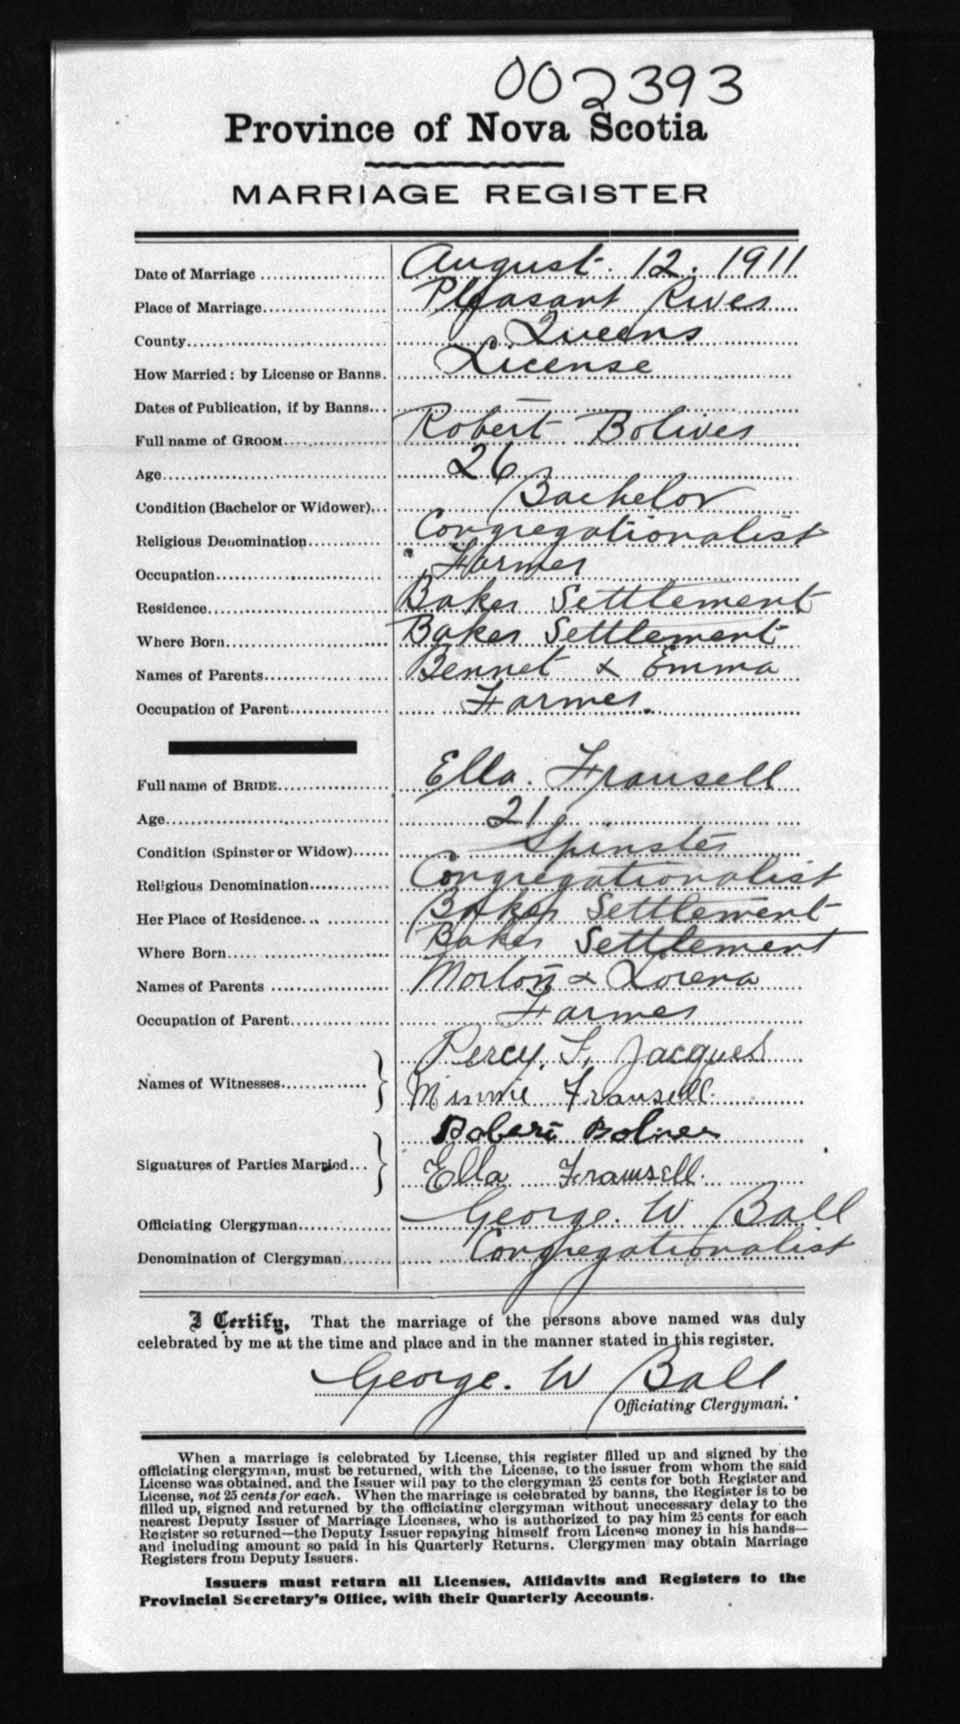 002393
Province of Nova Scotia
MARRIAGE REGISTER
Date of Marriage August. 12. 1911
Place of Marriage Pleasant River
County Queens
How Married: by License or Banns. License
Dates of Publication, if by Banns... —
Full name of GROOM Robert Boliver
Age 26
Condition (Bachelor or Widower) Bachelor
Religious Denomination Congregationalist
Occupation Farmer
Residence Baker Settlement
Where Born Baker Settlement
Names of Parents Bennet & Emma
Occupation of Parent Farmer.
Full name of BRIDE Ella. Fransell
Age 21
Condition (Spinster or Widow) Spinster
Religious Denomination Congregationalist
Her Place of Residence Baker Settlement
Where Born Baker Settlement
Names of Parents Morton & Lorena
Occupation of Parent Farmer
Percy. F. Jacques
Names of Witnesses Minnie Fransell.
Robert Boliver
Signatures of Parties Married Ella Framsell.
Officiating Clergyman George. W Ball
Denomination of Clergyman Congregationalist
I Certify, That the marriage of the persons above named was duly
celebrated by me at the time and place and in the manner stated in this register.
George. W Ball
Officiating Clergyman.
When a marriage is celebrated by License, this register filled up and signed by the
officiating clergyman, must be returned, with the License, to the issuer from whom the said
License was obtained, and the Issuer will pay to the clergyman 25 cents for both Register and
License, not 25 cents for each. When the marriage is celebrated by banns, the Register is to be
filled up, signed and returned by the officiating clergyman without unecessary delay to the
nearest Deputy Issuer of Marriage Licenses, who is authorized to pay him 25 cents for each
Register so returned—the Deputy Issuer repaying himself from License money in his hands—
and including amount so paid in his Quarterly Returns. Clergymen may obtain Marriage
Registers from Deputy Issuers.
Issuers must return all Licenses, Affidavits and Registers to the
Provincial Secretary's Office, with their Quarterly Accounts.